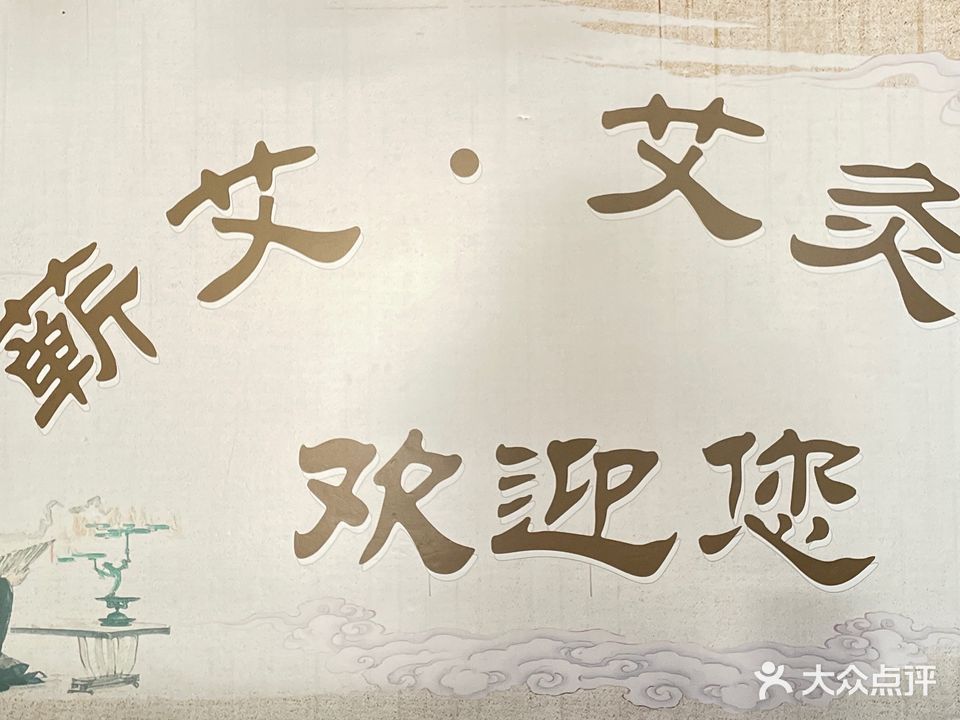 蕲艾·艾灸
欢迎您
大众点评